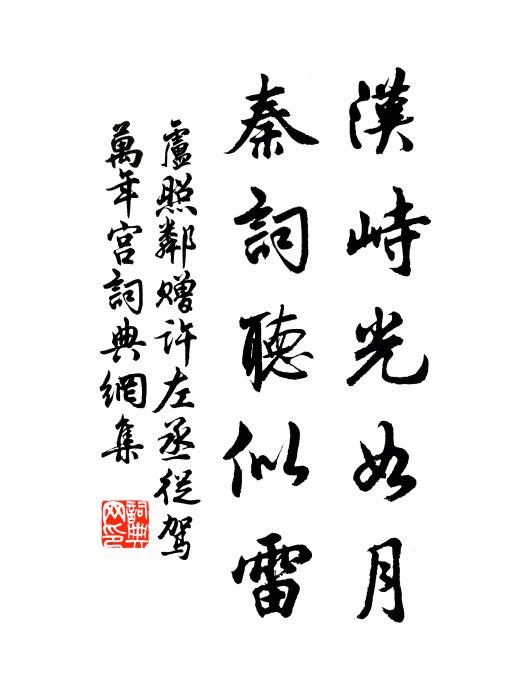 漢峙光如月
秦詞聽似雷
盧照鄰贈許左丞從駕
萬年宮詞典網集
詞典網印